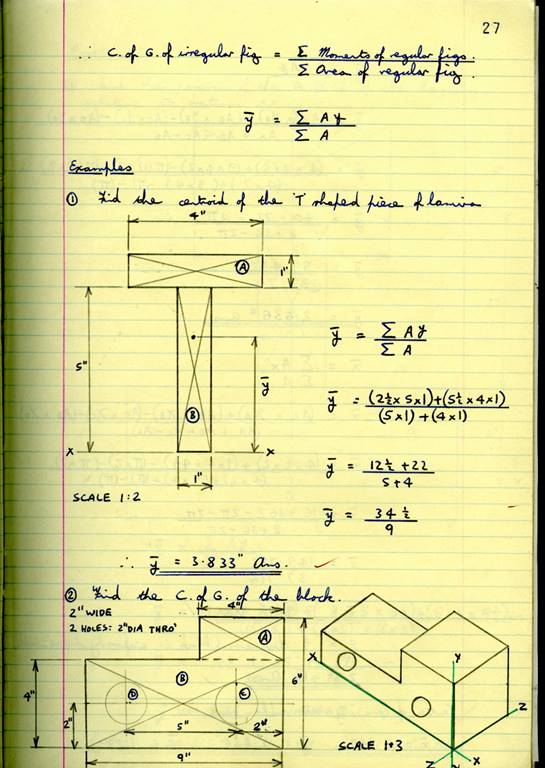 27
∴ C. of G. of irregular fig = Σ Moments of regular figs.
Σ Area of regular fig.
ȳ = Σ A y
Σ A
Examples
① Find the centroid of the 'T' shaped piece of lamina
4"
A
1"
5"
ȳ
B
X
X
1"
SCALE 1:2
ȳ = Σ A y
Σ A
ȳ = (2½ x 5 x 1) + (5½ x 4 x 1)
(5 x 1) + (4 x 1)
ȳ = 12½ + 22
5 + 4
ȳ = 34 ½
9
∴ ȳ = 3·833" Ans.
② Find the C. of G. of the block.
2" WIDE
2 HOLES: 2" DIA THRO'
4"
A
B
D
C
4"
2"
5"
2"
6"
9"
X
Y
Z
Z
X
SCALE 1:3